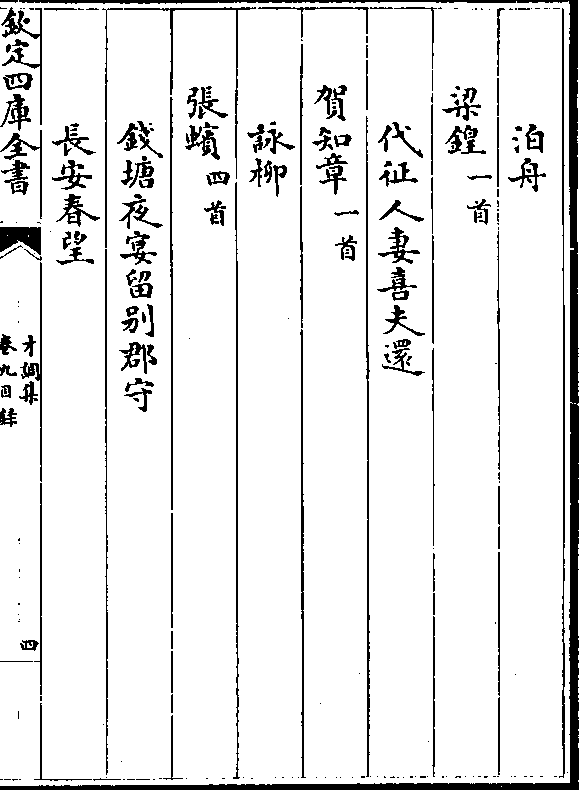 泊舟
梁鍠一首
代征人妻喜夫還
賀知章一首
詠柳
張蠙四首
錢塘夜宴留别郡守
長安春望
欽定四庫全書
才調集
卷九目錄
四